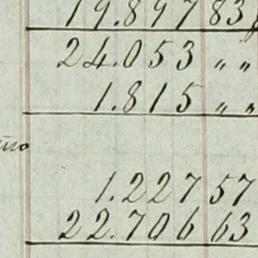 19.897 83
24.053 " "
1.815 " "
1.227 57
22.706 63